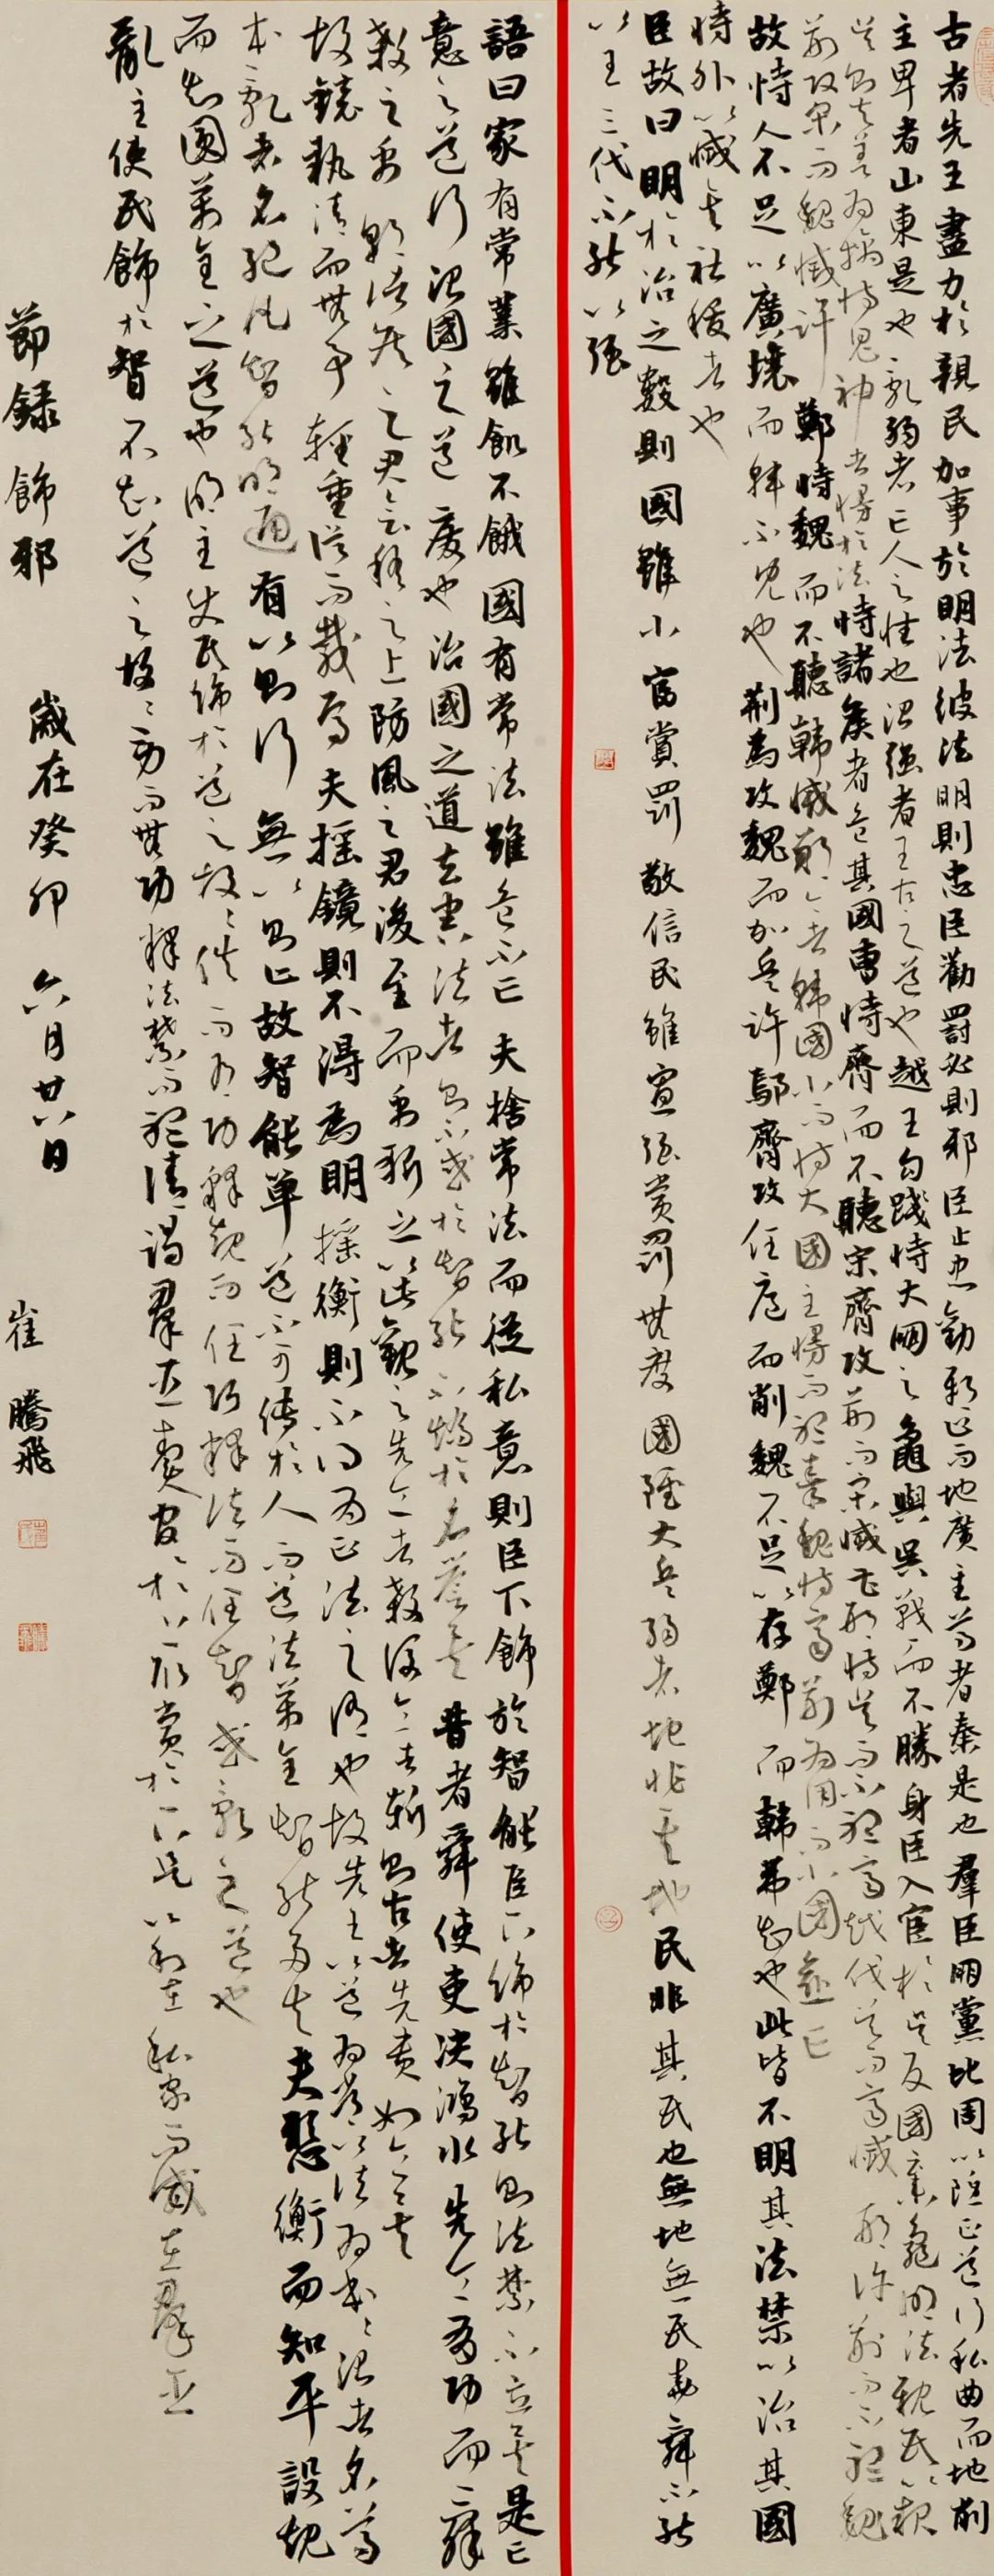 古者先王盡力於親民加事於明法彼法明則忠臣勸罰必則邪臣止忠勸邪止而地廣主尊者秦是也羣臣朋黨比周以隱正道行私曲而地削
主卑者山東是也亂弱者亡人之性也治強者王古之道也越王勾踐恃大朋之龜與吳戰而不勝身臣入宦於吳反國棄龜明法親民以報
吳則夫差為擒恃鬼神者慢於法恃諸侯者危其國曹恃齊而不聽宋齊攻荊而宋滅曹邢恃吳而不聽齊越伐吳而齊滅邢許荊而不聽魏
荊攻宋而魏滅許鄭恃魏而不聽韓滅鄭今者韓國小而恃大國主慢而聽秦魏恃齊荊為用而小國愈亡
故恃人不足以廣壤而韓不見也荊為攻魏而加兵許鄢齊攻任扈而削魏不足以存鄭而韓弗知也此皆不明其法禁以治其國
恃外以滅其社稷者也
臣故曰明於治之數則國雖小富賞罰敬信民雖寡強賞罰無度國雖大兵弱者地非其地民非其民也無地無民堯舜不能
以王三代不能以強
語曰家有常業雖飢不餓國有常法雖危不亡夫捨常法而從私意則臣下飾於智能臣下飾於智能則法禁不立矣是亡
意之道行治國之道廢也治國之道去害法者則不惑於智能不矯於名譽矣昔者舜使吏決鴻水先令有功而舜
殺之禹朝諸侯之君會稽之上防風之君後至而禹斬之以此觀之先令者殺後令者斬則古者先貴如令矣
故鏡執清而無事輕重從而載焉夫搖鏡則不得為明搖衡則不得為正法之謂也故先王以道為常以法為本々治者名尊
本亂者名絕凡智能明通有以則行無以則止故智能單道不可傳於人而道法萬全智能多失夫懸衡而知平設規
而知圓萬全之道也明主使民飾於道之故々佚而有功釋規而任巧釋法而任智惑亂之道也
亂主使民飾於智不知道之故々勞而無功釋法禁而聽請謁羣臣賣官々於上取賞於下是以利在私家而威在羣臣
節録飾邪 歲在癸卯六月廿八日 崔騰飛